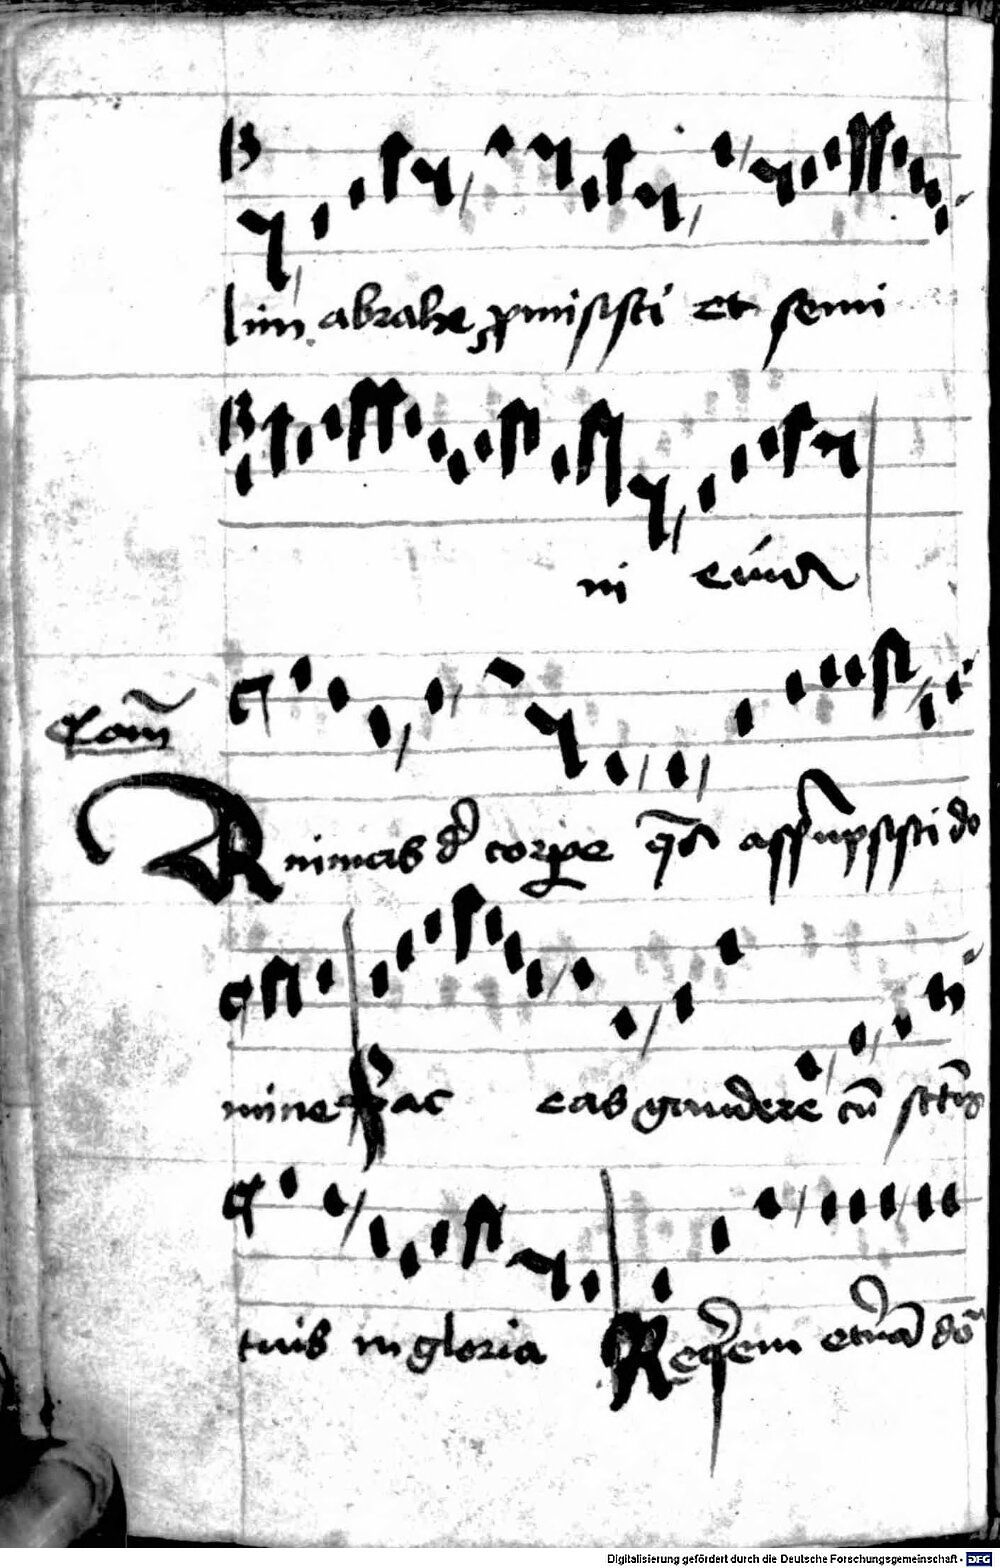 lim abrahe pmisisti et semi
ni eius
Com̄
Animas d' corpore qs assūpsisti do
mine fac eas gaudere cū sctis
tuis in gloria Reqem et'nā do
Digitalisierung gefördert durch die Deutsche Forschungsgemeinschaft - DFG